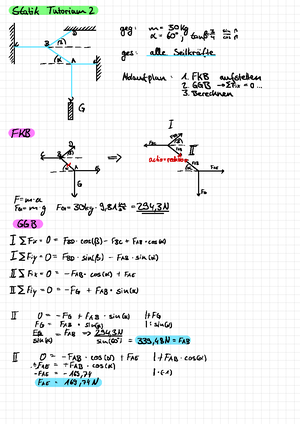 Statik Tutorium 2
geg: m = 30kg
α = 60°, tan β = 3/4
ges: alle Seilkräfte
B
A
G
Ablaufplan: 1. FKB aufstellen
2. GGB → ΣFix = 0 ...
3. Berechnen
FKB
I
II
actio = reactio
F = m·a
FG = m·g FG = 30kg · 9,81 = 294,3N
GGB
I ΣFix = 0 = FBD · cos(β) - FBC + FAB · cos(α)
I ΣFiy = 0 = FBD · sin(β) - FAB · sin(α)
II ΣFix = 0 = -FAB · cos(α) + FAE
II ΣFiy = 0 = -FG + FAB · sin(α)
II 0 = -FG + FAB · sin(α) |+FG
FG = FAB · sin(α) |: sin(α)
FG/sin(α) = FAB => 294,3N/sin(60°) = 339,48N = FAB
II 0 = -FAB · cos(α) + FAE |+FAB · cos(α)
-FAE = -169,74 |·(-1)
FAE = 169,74N